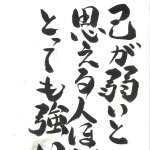 己が弱いと
思える人ほ
とっても強い